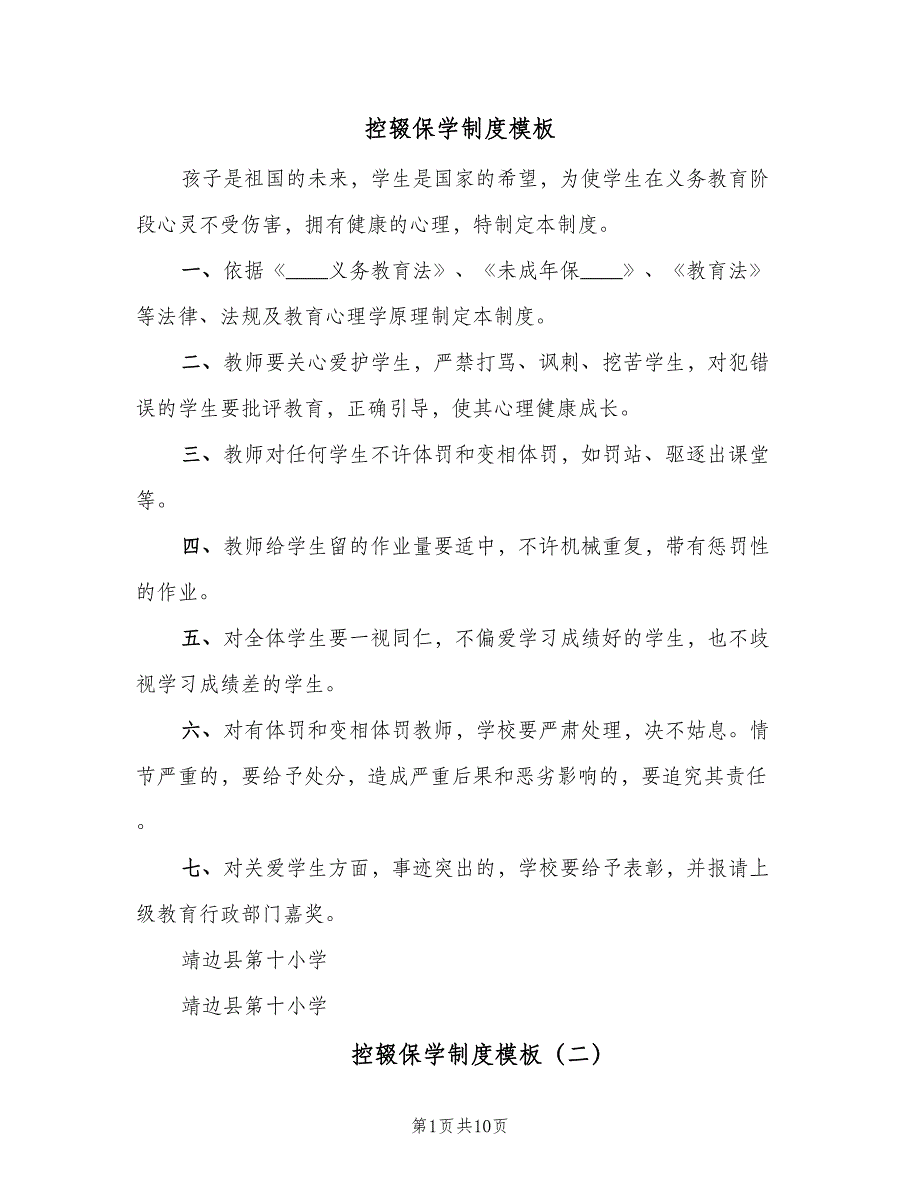 控辍保学制度模板
孩子是祖国的未来，学生是国家的希望，为使学生在义务教育阶
段心灵不受伤害，拥有健康的心理，特制定本制度。
一、依据《____义务教育法》、《未成年保____》、《教育法》
等法律、法规及教育心理学原理制定本制度。
二、教师要关心爱护学生，严禁打骂、讽刺、挖苦学生，对犯错
误的学生要批评教育，正确引导，使其心理健康成长。
三、教师对任何学生不许体罚和变相体罚，如罚站、驱逐出课堂
等。
四、教师给学生留的作业量要适中，不许机械重复，带有惩罚性
的作业。
五、对全体学生要一视同仁，不偏爱学习成绩好的学生，也不歧
视学习成绩差的学生。
六、对有体罚和变相体罚教师，学校要严肃处理，决不姑息。情
节严重的，要给予处分，造成严重后果和恶劣影响的，要追究其责任
。
七、对关爱学生方面，事迹突出的，学校要给予表彰，并报请上
级教育行政部门嘉奖。
靖边县第十小学
靖边县第十小学
控辍保学制度模板（二）
第1页共10页